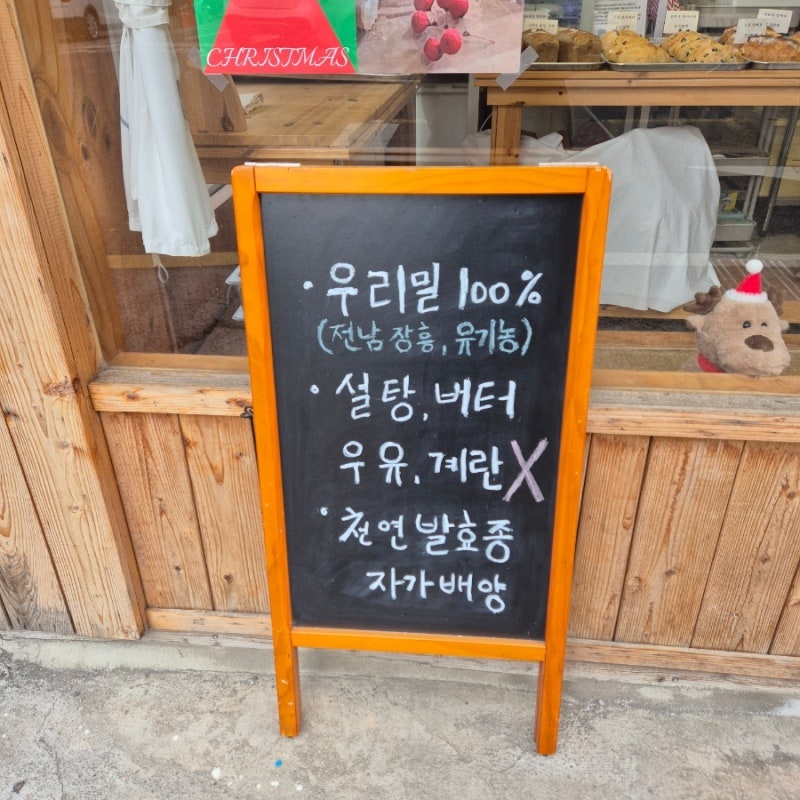 CHRISTMAS
· 우리밀 100%
(전남 장흥, 유기농)
· 설탕, 버터
우유, 계란 X
· 천연 발효종
자가배양